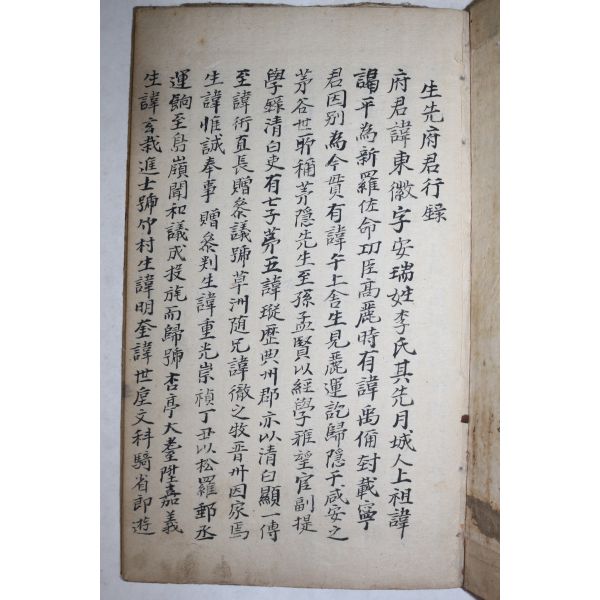 生先府君行錄
府君諱東徽字安瑞姓李氏其先月城人上祖諱
謁平為新羅佐命功臣高麗時有諱禹偁封載寧
君因別為今貫有諱午上舍生見麗運訖歸隱于咸安之
茅谷世耶稱茅隱先生至孫孟賢以經學雅望官副提
學錄清白吏有七子苐五諱瑺歷典州郡亦以清白顯一傳
至諱術直長贈叅議號草洲随兄諱徹之牧晋州因家焉
生諱惟諴奉事贈叅判生諱重光崇禎丁丑以松羅郵丞
運餉至鳥嶺聞和議成投旄而歸號杏亭大耋陞嘉義
生諱玄栽進士號竹村生諱明奎諱世垕文科騎省郎遊